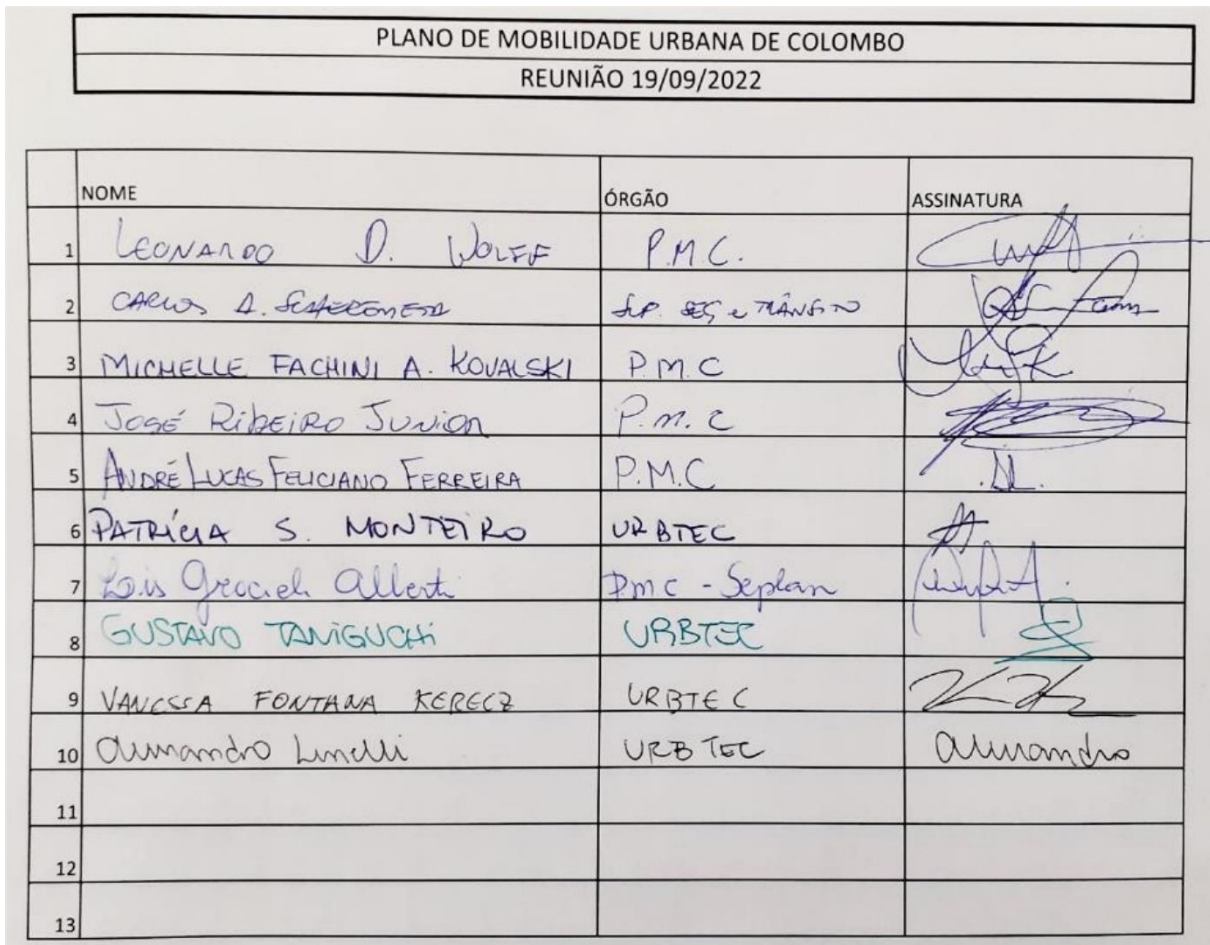 PLANO DE MOBILIDADE URBANA DE COLOMBO
REUNIÃO 19/09/2022
NOME ÓRGÃO ASSINATURA
1 LEONARDO D. WOLFF P.M.C.
2 CARLOS A. TRÂNSITO
3 MICHELLE FACHINI A. KOVALSKI P.M.C
4 JOSÉ RIBEIRO JUNIOR P.M.C
5 ANDRÉ LUCAS FELICIANO FERREIRA P.M.C
6 PATRÍCIA S. MONTEIRO URBTEC
7 Alberti PMC - Seplan
8 GUSTAVO TANIGUCHI URBTEC
9 VANESSA FONTANA KERECZ URBTEC
10 URBTEC
11
12
13